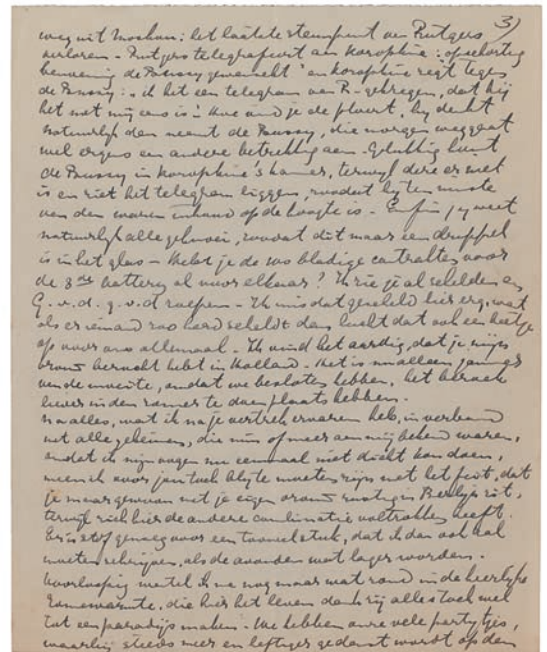 3)
weg uit Moskou: het laatste steunpunt van Rutgers
verloren - Rutgers telegrafeert aan Koropkine: opschorting
benoeming de Bussy gewenscht" en Koropkine zegt tegen
de Bussy: ik heb een telegram van R- gekregen, dat hij
het met mij eens is! Hoe vind je de ploert, hij denkt
natuurlijk dan neemt de Bussy, die morgen weggaat
wel ergens een andere betrekking aan. Gelukkig komt
de Bussy in Koropkine's kamer, terwijl deze er niet
is en ziet het telegram liggen, zoodat hij ten minste
van den waren inhoud op de hoogte is - Enfin jij weet
natuurlijk alle geheimen, zoodat dit maar een druppel
is in het glas - Hebt je de 100 bladige contrakten voor
de 3de battery al voor elkaar? Ik zie je al schelden en
G.v.d. g.v.d roepen - Ik mis dat gescheld hier erg, want
als er iemand zoo hard scheldt dan lucht dat ook een beetje
op voor ons allemaal - Ik vind het aardig, dat je mijn
vrouw bezocht hebt in Holland - Het is nu alleen jammer
van de moeite, omdat we besloten hebben, het bezoek
liever in den zomer te doen plaats hebben.
Nu alles, wat ik na je vertrek ervaren heb, in verband
met alle geheimen, die min of meer aan mij bekend waren,
omdat ik mijn oogen nu eenmaal niet dicht kan doen,
meen ik voor jou toch blij te moeten zijn met het feit, dat
je maar gewoon met je eigen vrouw rustig in Berlijn zit,
terwijl zich hier de andere combinatie voltrokken heeft.
Er is stof genoeg voor een tooneelstuk, dat ik dan ook zal
moeten schrijven, als de avonden wat langer worden.
Voorloopig wentel ik me nog maar wat rond in de heerlijke
zomerwarmte, die hier het leven dank zij alles toch wel
tot een paradijs maken - We hebben onze vele partytjes,
waarbij steeds meer en heftiger gedanst wordt op den